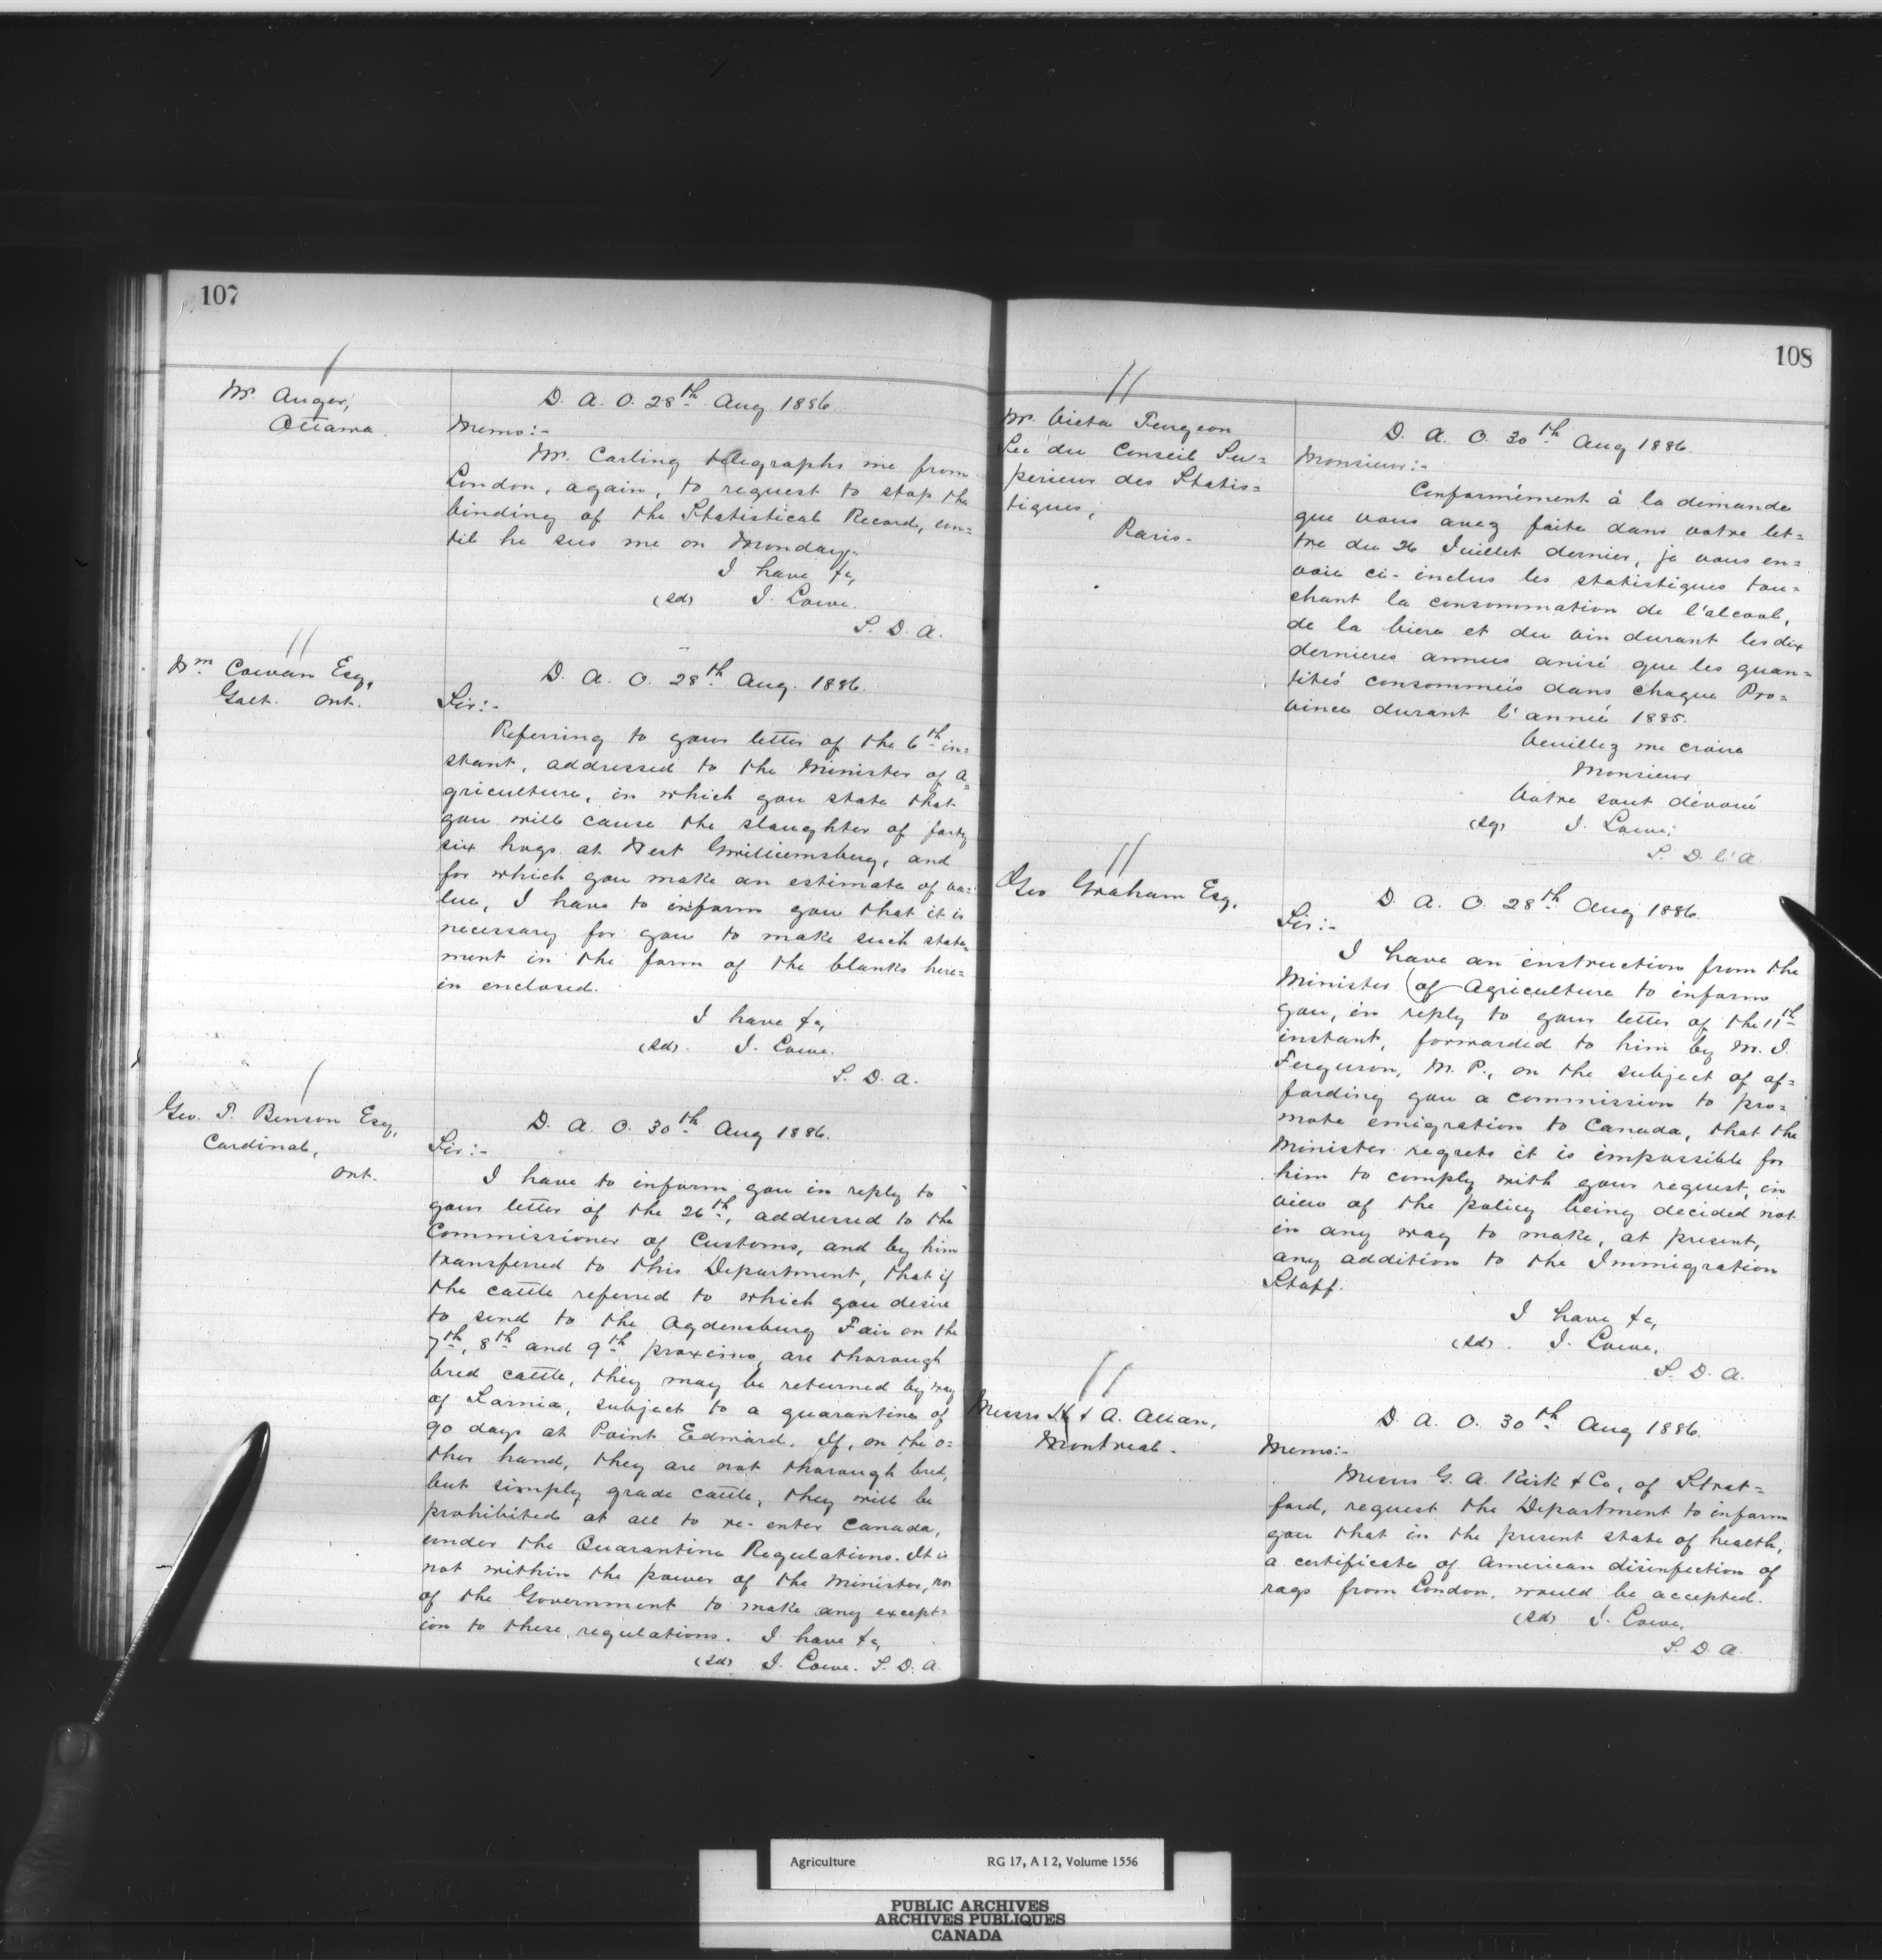 107
Mr. Auger,
Ottawa.
D. A. O. 28th Aug 1886.
Memo:-
Mr. Carling telegraphs me from
London, again, to request to stop the
binding of the Statistical Record, un=
til he sees me on Monday.
I have &c,
(Sd) J. Lowe.
S. D. A.
Wm Cowan Esq,
Galt. Ont.
D. A. O. 28th Aug. 1886.
Sir:-
Referring to your letter of the 6th in=
stant, addressed to the Minister of A=
griculture, in which you state that
you will cause the slaughter of forty
six hogs at West Gwilliemsburg, and
for which you make an estimate of va=
lue, I have to inform you that it is
necessary for you to make such state=
ment in the form of the blanks here=
in enclosed.
I have &c,
(Sd). J. Lowe.
S. D. A.
Geo. T. Benson Esq,
Cardinal,
Ont.
D. A. O. 30th Aug 1886.
Sir:-
I have to inform you in reply to
your letter of the 26th, addressed to the
Commissioner of Customs, and by him
transferred to this Department, that if
the cattle referred to which you desire
to send to the Ogdensburg Fair on the
7th, 8th and 9th proximo, are thorough
bred cattle, they may be returned by way
of Sarnia, subject to a quarantine of
90 days at Point Edward. If, on the o=
ther hand, they are not thorough bred,
but simply grade cattle, they will be
prohibited at all to re-enter Canada,
under the Quarantine Regulations. It is
not within the power of the Minister, nor
of the Government to make any except=
ion to these regulations. I have &c,
(Sd) J. Lowe. S. D. A.
108
Mr. Victor Turgeon
Sec du Conseil Su=
périeur des Statis=
tiques,
Paris.
D. A. O. 30th Aug 1886.
Monsieur:-
Conformément à la demande
que vous avez faite dans votre let=
tre du 26 Juillet dernier, je vous en=
voie ci-inclus les statistiques tou=
chant la consommation de l'alcool,
de la biere et du vin durant les dix
dernieres annees ainsi que les quan=
tités consommées dans chaque Pro=
vince durant l'année 1885.
Veuillez me croire
Monsieur
Votre tout dévoué
(Sg) J. Lowe,
S. D. l'A.
Geo Graham Esq,
D. A. O. 28th Aug 1886.
Sir:-
I have an instruction from the
Minister of Agriculture to inform
you, in reply to your letter of the 11th
instant, forwarded to him by M. J.
Ferguson, M. P., on the subject of af=
fording you a commission to pro=
mote emigration to Canada, that the
Minister regrets it is impossible for
him to comply with your request, in
view of the policy being decided not
in any way to make, at present,
any addition to the Immigration
Staff.
I have &c,
(Sd). J. Lowe,
S. D. A.
Messrs H. & A. Allan,
Montreal.
D. A. O. 30th Aug 1886.
Memo:-
Messrs G. A. Kirk & Co, of Strat=
ford, request the Department to inform
you that in the present state of health,
a certificate of American disinfection of
rags from London, would be accepted.
(Sd) J. Lowe,
S. D. A.
Agriculture RG 17, A I 2, Volume 1556
PUBLIC ARCHIVES
ARCHIVES PUBLIQUES
CANADA